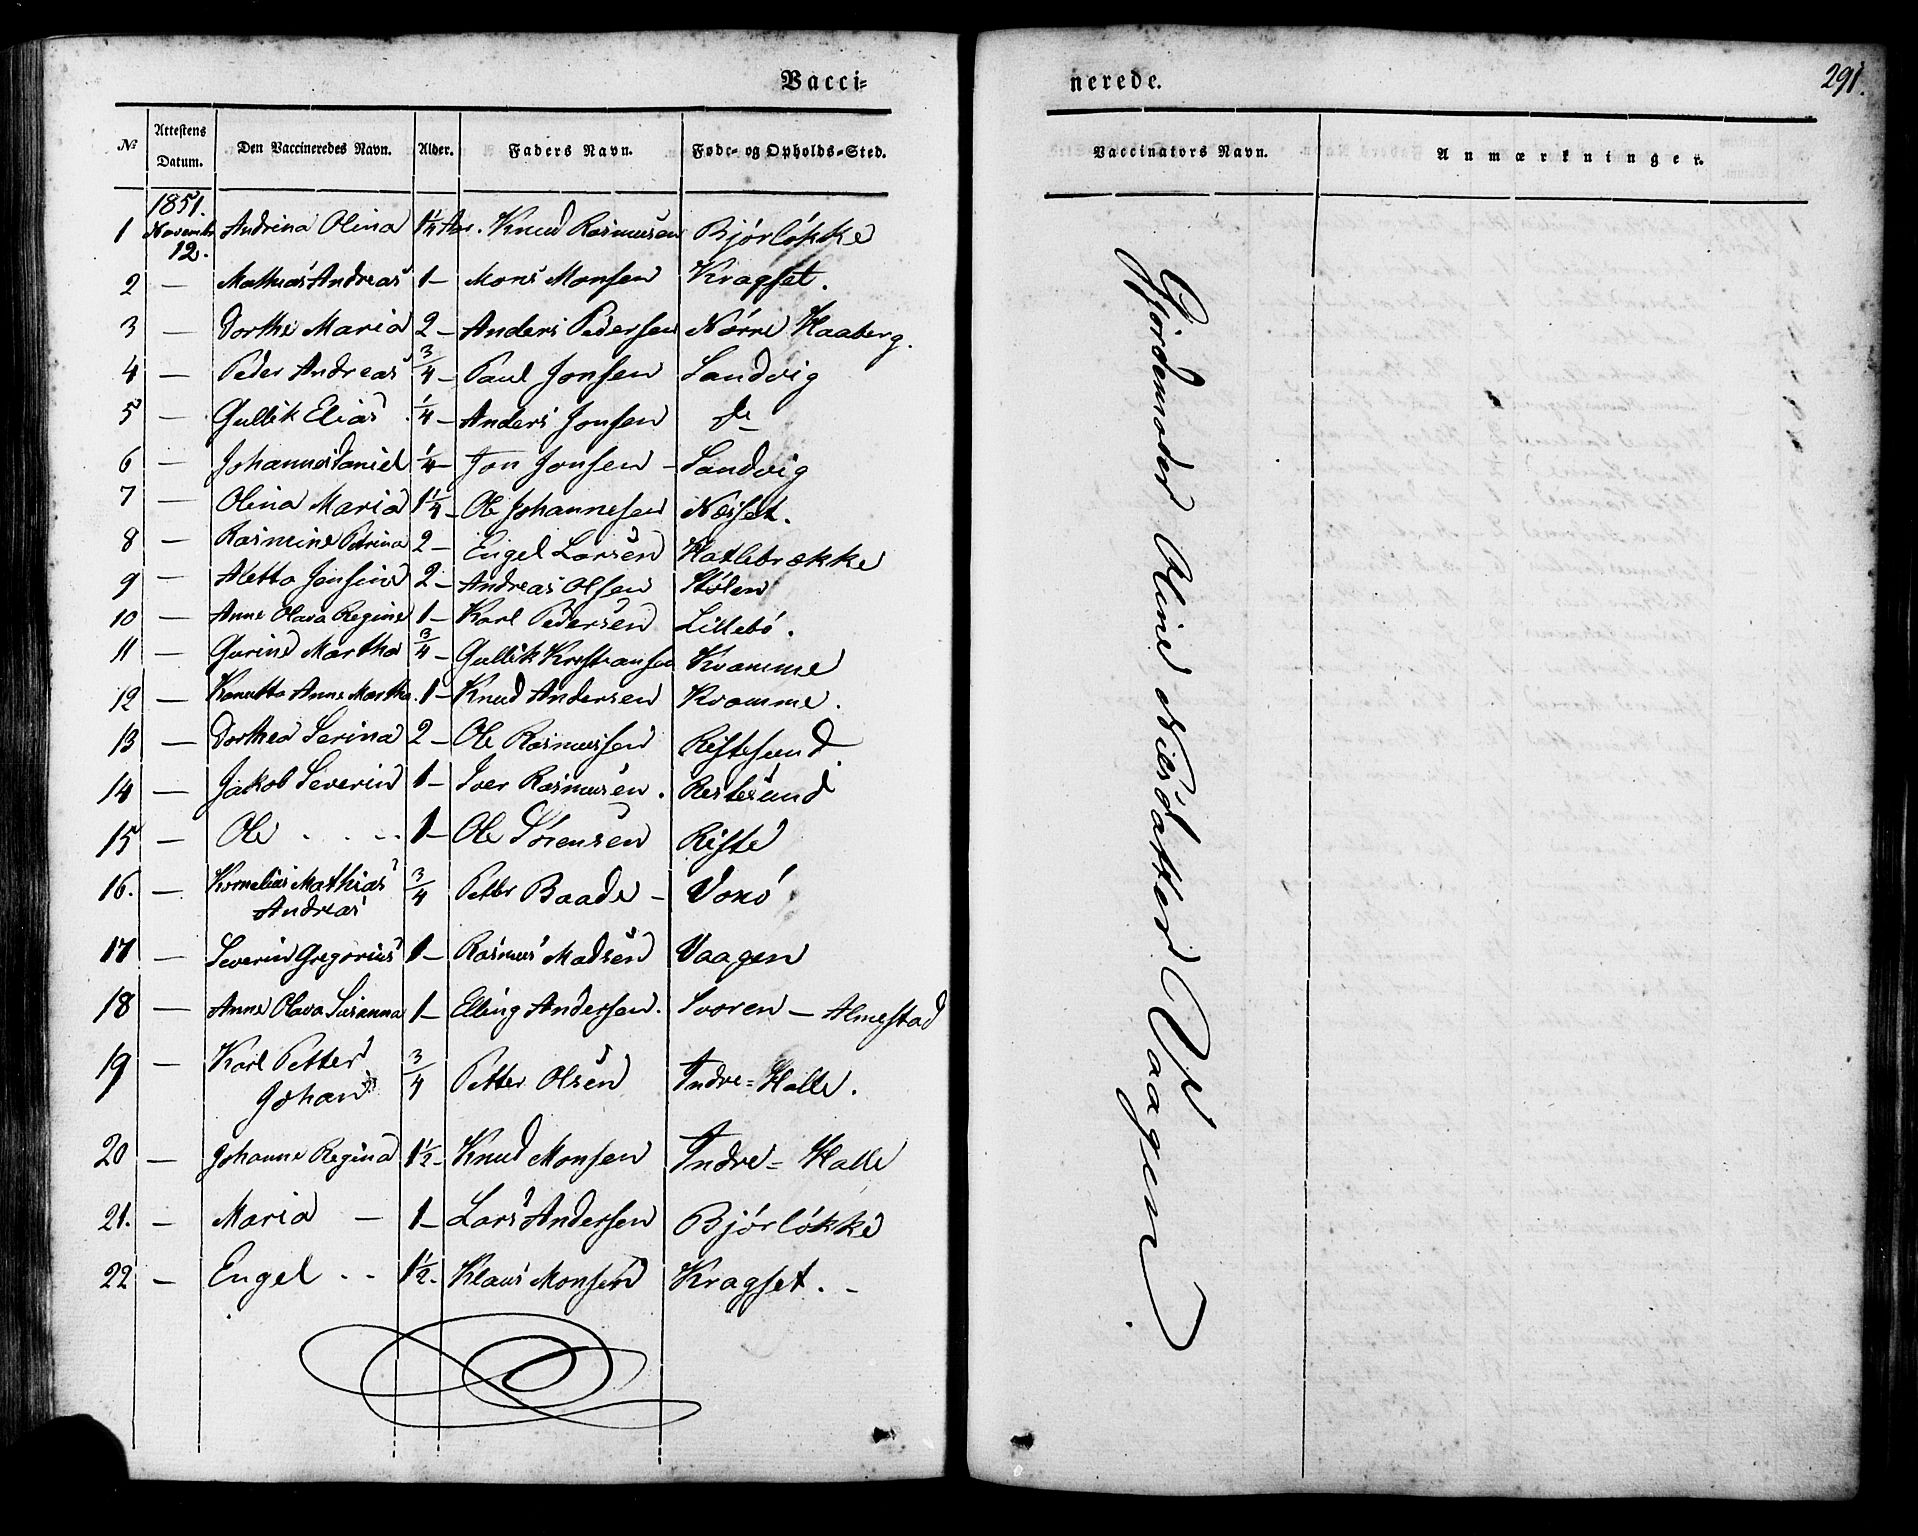 Vacci-
№ Attestens Datum. Den Vaccineredes Navn. Alder. Faders Navn. Føde- og Opholds-Sted.
1851.
1 Novembr 12. Andrina Olina 1¼ Aar. Knud Rasmusen Bjórlókke
2 — Mathias Andreas 1 — Mons Monsen Kragset.
3 — Dorthe Maria 2 — Anders Pedersen Nórre Haaberg.
4 — Peder Andreas ¾ — Paul Jonsen Sandvig
5 — Gullik Elias ¼ — Anders Jonsen do
6 — Johannes Daniel ¼ — Jon Jonsen — Sandvig
7 — Olina Maria 1¼ — Ole Johannesen Næsset.
8 — Rasmine Petrina 2 — Engel Larsen Hatlebrække
9 — Aletta Jensine 2 — Andreas Olsen Stólen
10 — Anne Olava Regine 1 — Karl Pedersen Lillebó.
11 — Gurine Martha ¾ — Gullik Kristiansen Kvamme
12 — Kanutta Anne Martha. 1 — Knud Andersen Kvamme.
13 — Dorthea Serina 2 — Ole Rasmussen Ristesund
14 — Jakob Severin 1 — Iver Rasmusen. Ristesund
15 — Ole 1 — Ole Sórensen Riste
16. — Kornelius Mathias ¾ Petter Baade — Voxó
Andreas
17 — Severin Gregorius 1 — Rasmus Madsen Vaagen
18 — Anne Olava Susanna 1 — Elling Andersen. Svoren — Almestad
19 — Karl Petter ¾ Petter Olsen Indre-Halle.
Johan
20 — Johanne Regina 1½ — Knud Monsen Indre-Halle
21. — Maria — 1 — Lars Andersen Bjórlókke
22 — Engel 1½ — Klaus Monsen Kragset. —
nerede. 291.
Vaccinators Navn. Anmærkninger.
Gjordemoder Oline Nilsdatter Vaagen.